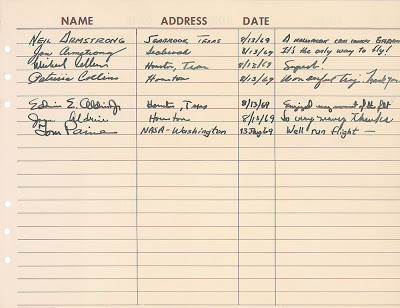 NAME ADDRESS DATE
NEIL ARMSTRONG SEABROOK TEXAS 8/13/69 A
Jan Armstrong Seabrook 8/13/69 It's the only way to fly!
Michael Collins Houston, Texas 8/13/69 Superb!
Patricia Collins Houston 8/13/69 Wonderful trip. Thank you
Edwin E. Aldrin Jr. Houston, Texas 8/13/69 Enjoyed every moment of the
Joan Aldrin Houston 8/13/69 So very many Thanks
Tom Paine NASA-Washington 13 Aug 69 Well run flight —